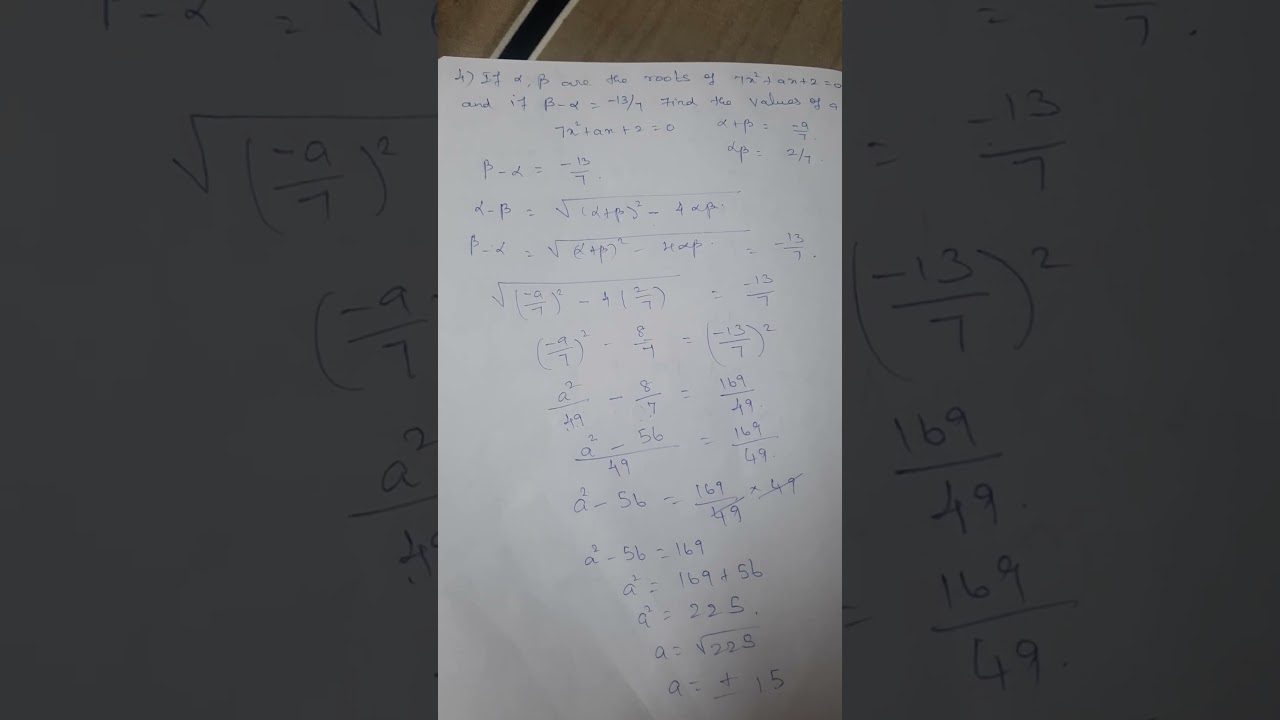 4) If α, β are the roots of 7x²+ax+2=0
and if β-α = -13/7 Find the values of a
7x²+ax+2=0 α+β = -a/7.
αβ = 2/7.
β-α = -13/7.
α-β = √(α+β)² - 4αβ.
β-α = √(α+β)² - 4αβ. = -13/7.
√(-a/7)² - 4(2/7) = -13/7
(-a/7)² - 8/7 = (-13/7)²
a²/49 - 8/7 = 169/49.
a² - 56/49 = 169/49.
a² - 56 = 169/49 × 49
a² - 56 = 169
a² = 169 + 56
a² = 225.
a = √225
a = ± 15